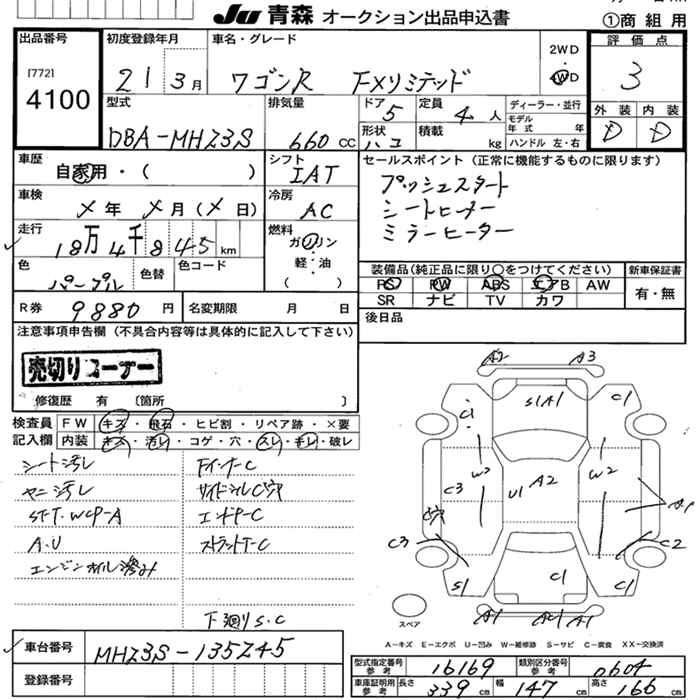 JU 青森 オークション出品申込書
①商組用
出品番号
[772]
4100
初度登録年月
21 3月
車名・グレード
ワゴンR FXリミテッド
2WD
4WD
評価点
3
型式
DBA-MH23S
排気量
660 CC
ドア 5
定員 4 人
形状 ハコ
積載 kg
ディーラー・並行
モデル年式 年式
ハンドル 左・右
外装 内装
D D
車歴
自家用・( )
シフト
IAT
セールスポイント(正常に機能するものに限ります)
プッシュスタート
シートヒーター
ミラーヒーター
車検
メ年 メ月(メ日)
冷房
AC
走行
18万4千845km
燃料
ガソリン
軽・油
( )
色
パープル
色替
色コード
装備品(純正品に限り○をつけてください)
PS PW ABS エアB AW
SR ナビ TV カワ
新車保証書
有・無
R券 9880 円
名変期限 月 日
後日品
注意事項申告欄(不具合内容等は具体的に記入して下さい)
売切りコーナー
修復歴 有 〔箇所 〕
検査員記入欄
FW キズ・飛石・ヒビ割・リペア跡・×要
内装 キズ・汚レ・コゲ・穴・スレ・キレ・破レ
シート汚レ
ヤニ汚レ
ST.T.WCP-A
A.U
エンジンオイル滲み
Fインナー C
サイドシル C穴
エンドP-C
ストラットT-C
下廻りS.C
A2 A3
S1A1
C1 C1
W2 W2
C3 U1 A2
C穴 A1
C3 C2
S1 C1 C1
A1 AC1 A1
スペア
A-キズ E-エクボ U-凹み W-補修跡 S-サビ C-腐食 XX-交換済
車台番号
MH23S-135245
登録番号
型式指定番号 参考 16169
類別区分番号 参考 0604
車庫証明用 参考 長さ 339 cm 幅 147 cm 高さ 166 cm